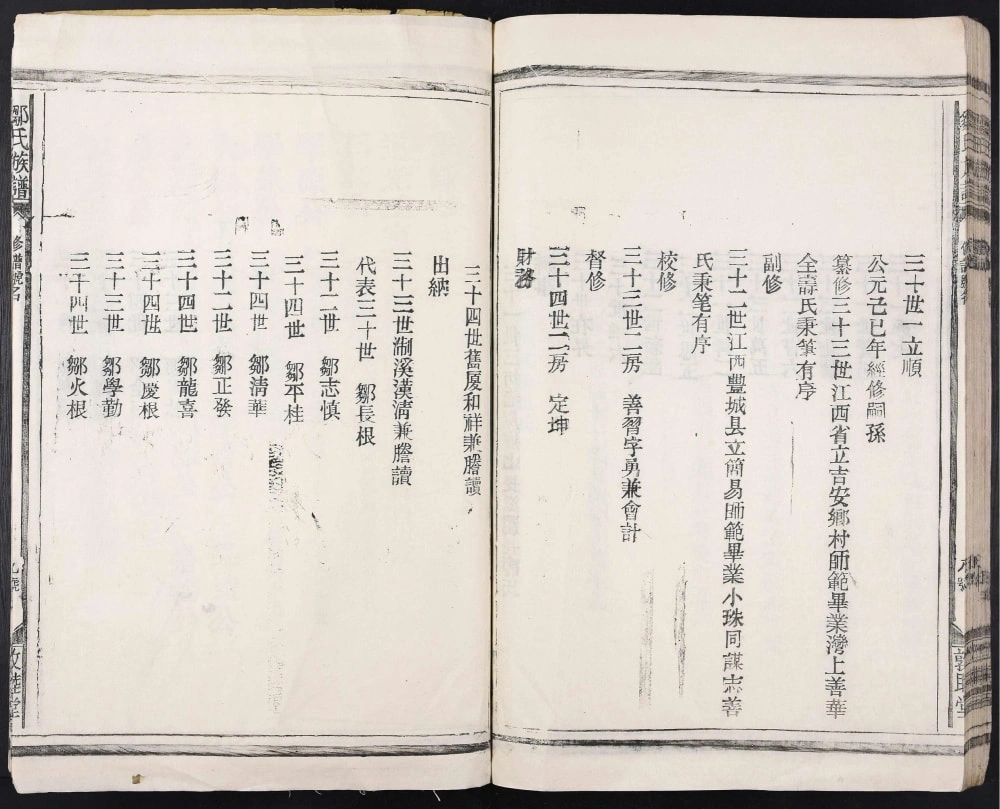 三十世一立順
公元己巳年經修嗣孫
纂修三十三世江西省立吉安鄉村師範畢業灣上善華
全壽氏秉筆有序
副修
三十二世江西豐城县立簡易師範畢業小珠同謀志善
氏秉笔有序
校修
三十三世二房 善習字勇兼會計
督修
三十四世二房 定坤
財務
三十四世舊厦和祥兼謄讀
出納
三十三世淛溪漢清兼謄讀
代表三十世 鄒長根
三十二世 鄒志慎
三十四世 鄒平桂
三十四世 鄒清華
三十二世 鄒正發
三十四世 鄒龍喜
三十四世 鄒慶根
三十三世 鄒學勤
三十四世 鄒火根
鄒氏族譜
修譜
九號
敦睦堂